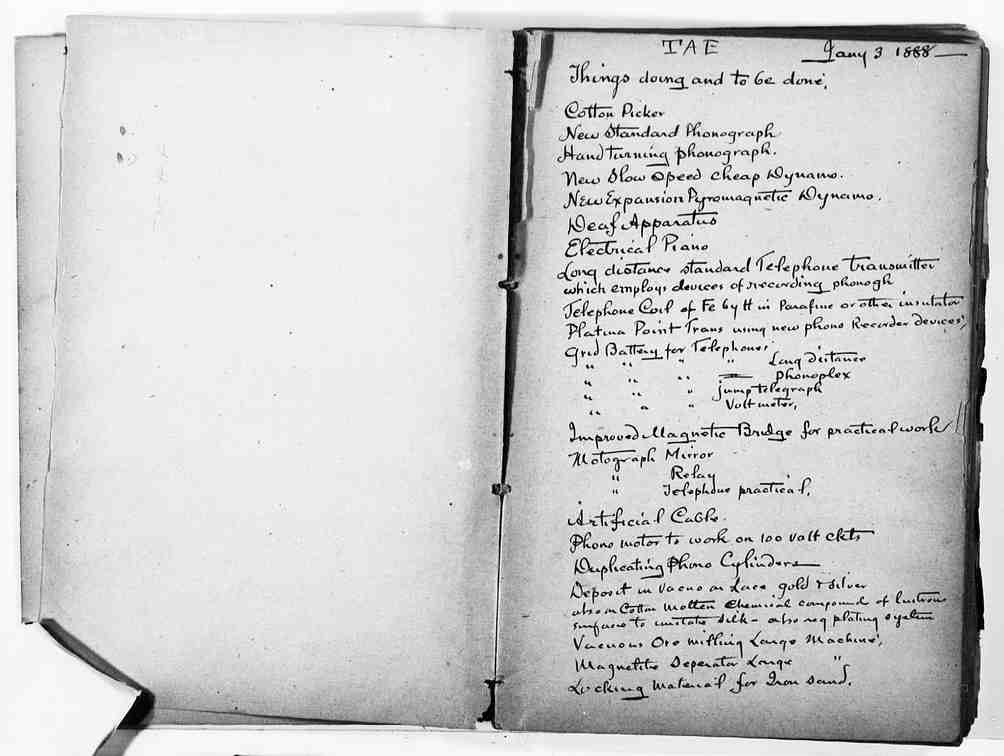 TAE Jany 3 1888
Things doing and to be done,
Cotton Picker
New Standard Phonograph
Hand turning phonograph.
New Slow Speed cheap Dynamo.
New Expansion Pyromagnetic Dynamo.
Deaf Apparatus
Electrical Piano
Long distance standard Telephone transmitter
which employs devices of recording phonogh
Telephone Coil of Fe by tt in Parafine or other insulator
Platina Point Trans using new phono Recorder devices,
Grid Battery for Telephones,
" " " " Long distance
" " " — Phonoplex
" " " jump telegraph
" " " Voltmeter,
Improved Magnetic Bridge for practical work
Motograph Mirror
" Relay
" Telephone practical,
Artificial Cable.
Phono motor to work on 100 volt ckts
Duplicating Phono Cylinders
Deposit in Vacuo on Lace gold & silver
also on Cotton molten chemical compound of lustrous
surface to imitate silk – also reg plating system
Vacuous Ore milling Large Machine,
Magnetite Seperator Large "
Locking material for Iron Sand,